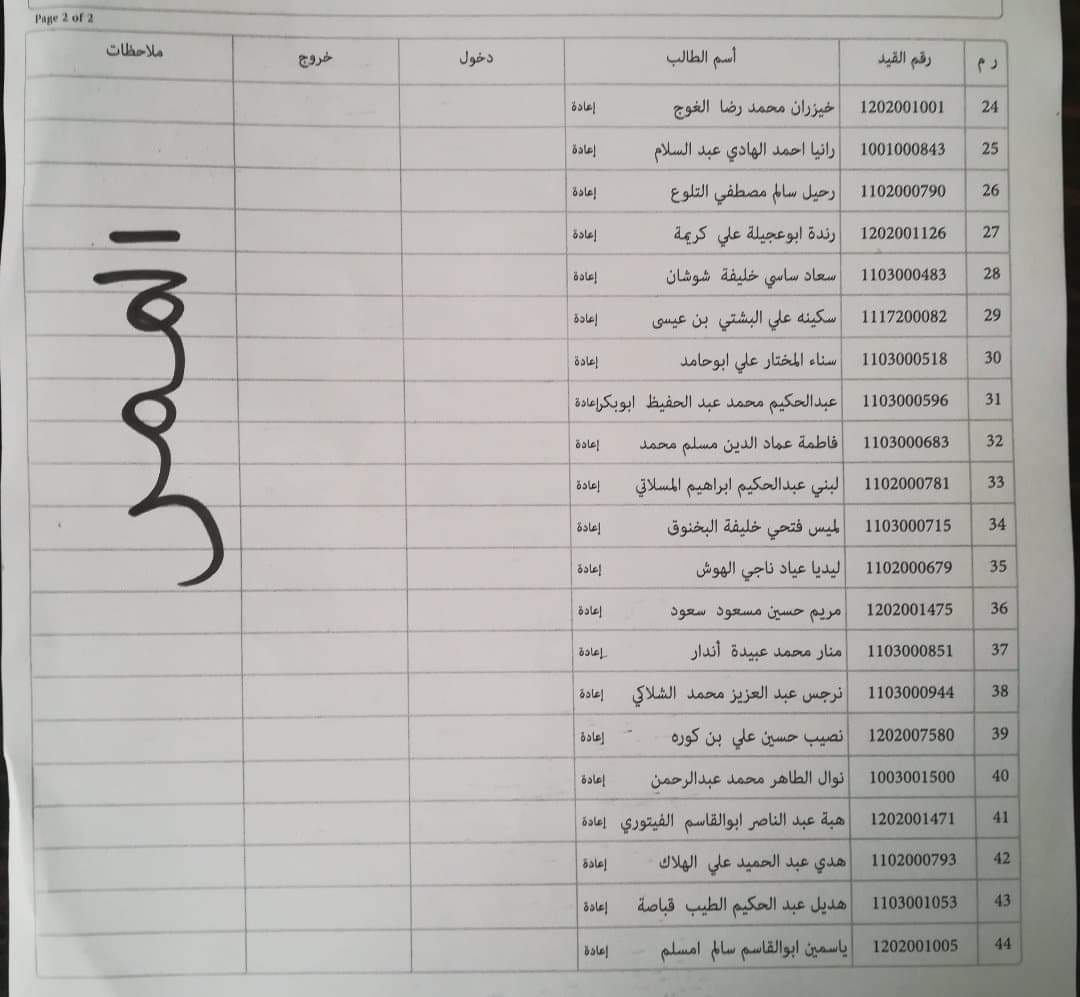 Page 2 of 2
ر م رقم القيد أسم الطالب دخول خروج ملاحظات
24 1202001001 خيزران محمد رضا الغوج إعادة
25 1001000843 رانيا احمد الهادي عبد السلام إعادة
26 1102000790 رحيل سالم مصطفي التلوع إعادة
27 1202001126 رندة ابوعجيلة علي كريمة إعادة
28 1103000483 سعاد ساسي خليفة شوشان إعادة
29 1117200082 سكينه علي البشتي بن عيسى إعادة
30 1103000518 سناء المختار علي ابوحامد إعادة
31 1103000596 عبدالحكيم محمد عبد الحفيظ ابوبكر إعادة
32 1103000683 فاطمة عماد الدين مسلم محمد إعادة
33 1102000781 لبني عبدالحكيم ابراهيم المسلاتي إعادة
34 1103000715 لميس فتحي خليفة البخنوق إعادة
35 1102000679 ليديا عياد ناجي الهوش إعادة
36 1202001475 مريم حسين مسعود سعود إعادة
37 1103000851 منار محمد عبيدة أندار إعادة
38 1103000944 نرجس عبد العزيز محمد الشلاكي إعادة
39 1202007580 نصيب حسين علي بن كوره إعادة
40 1003001500 نوال الطاهر محمد عبدالرحمن إعادة
41 1202001471 هبة عبد الناصر ابوالقاسم الفيتوري إعادة
42 1102000793 هدي عبد الحميد علي الهلاك إعادة
43 1103001053 هديل عبد الحكيم الطيب قباصة إعادة
44 1202001005 ياسمين ابوالقاسم سالم امسلم إعادة